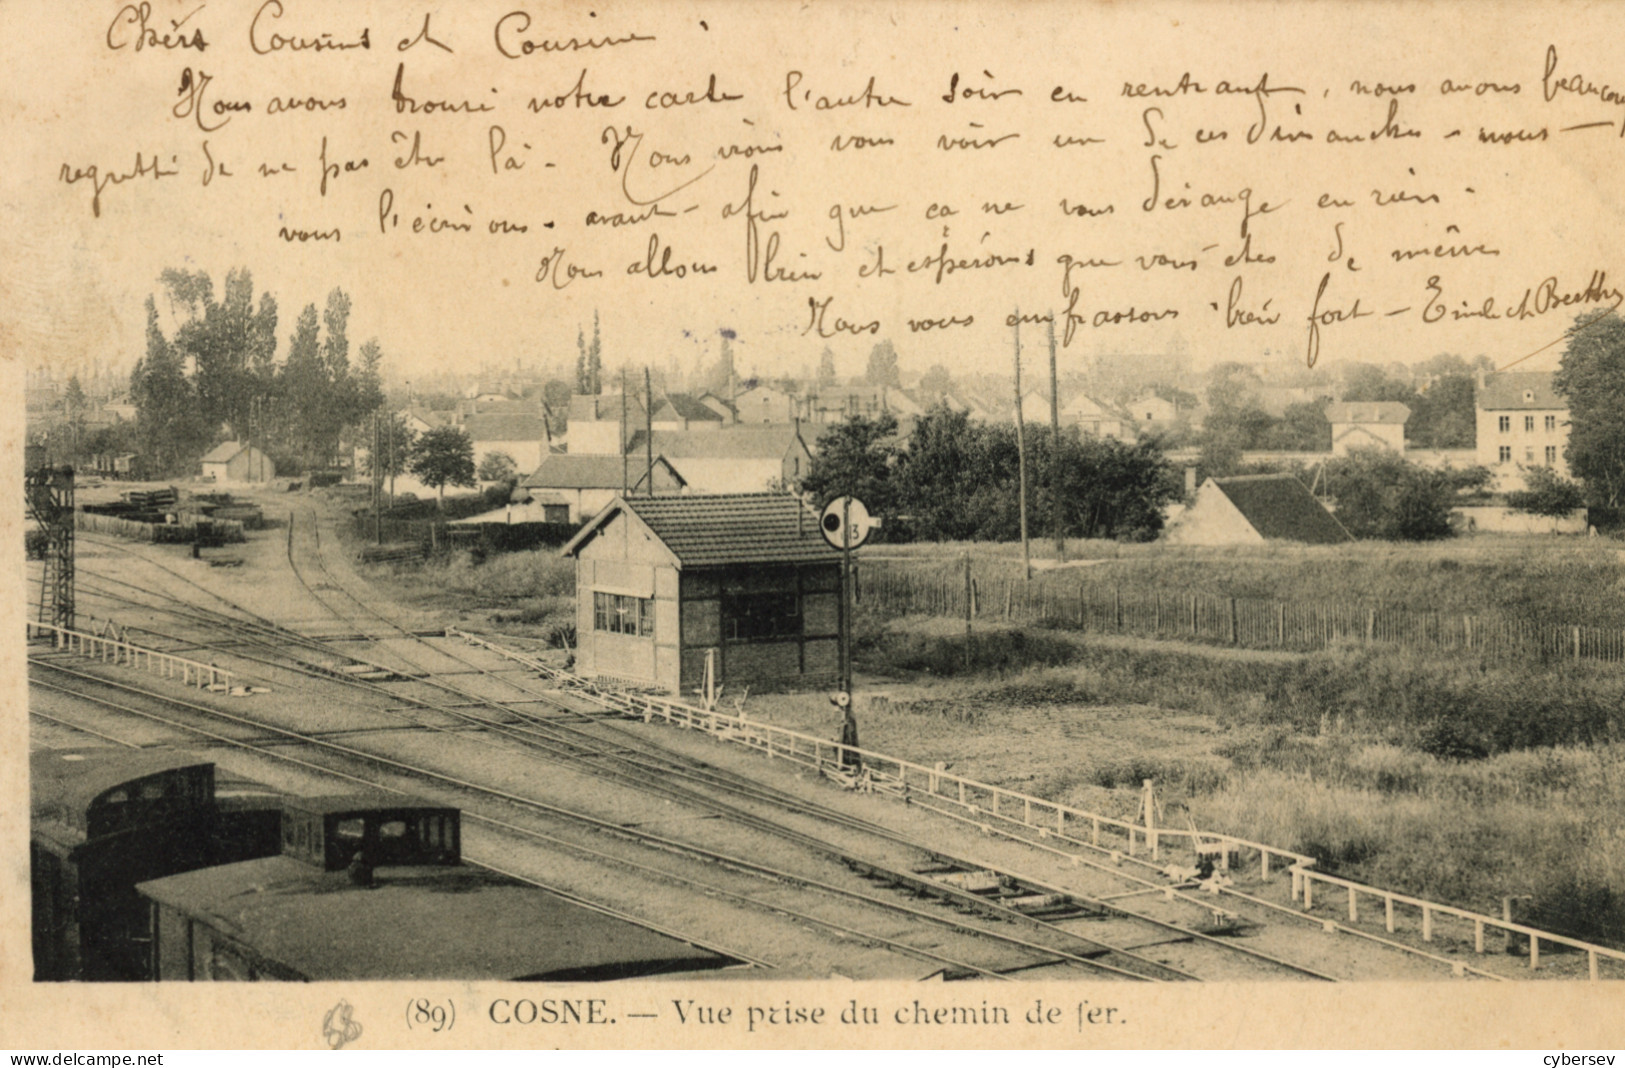 Chers Cousins et Cousine
Nous avons trouvé votre carte l'autre soir en rentrant, nous avons beaucoup
regretté de ne pas être là. Nous irons vous voir un de ces dimanches - nous -
vous l'écrirons - avant - afin que ça ne vous dérange en rien.
Nous allons bien et espérons que vous êtes de même
Nous vous embrassons bien fort - Emile et Berthe
3
(89) COSNE. — Vue prise du chemin de fer.
delcampe.net
cybersev